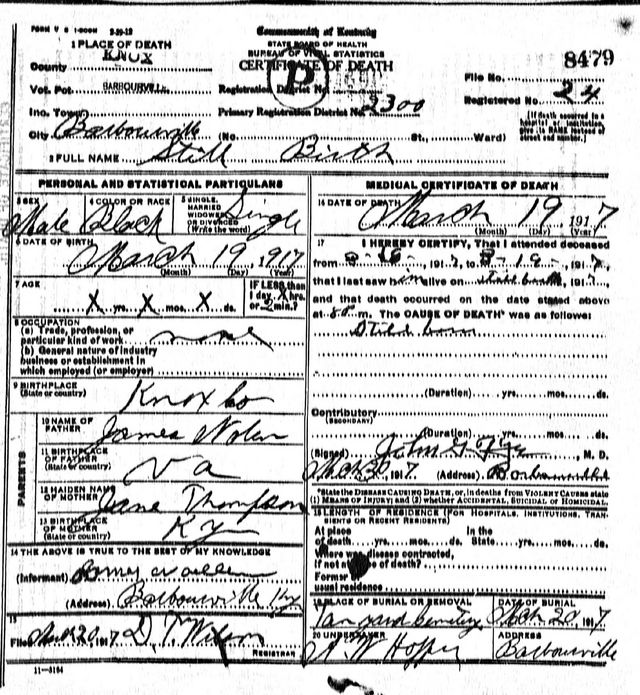 FORM V S 1-500M 3-20-12
Commonwealth of Kentucky
STATE BOARD OF HEALTH
BUREAU OF VITAL STATISTICS
CERTIFICATE OF DEATH
P
1 PLACE OF DEATH
County KNOX
Vot. Pct. BARBOURVILLE
Inc. Town
City Barbourville (No. St., Ward)
Registration District No.
Primary Registration District No. 2300
File No. 8479
Registered No. 24
[If death occurred in a hospital or institution, give its NAME instead of street and number.]
2 FULL NAME Still Birth
PERSONAL AND STATISTICAL PARTICULARS
3 SEX Male
4 COLOR OR RACE Black
5 SINGLE, MARRIED WIDOWED OR DIVORCED (Write the word) Single
6 DATE OF BIRTH March 19, 1917
(Month) (Day) (Year)
7 AGE
X yrs. X mos. X ds.
IF LESS than 1 day, X hrs. or min.?
8 OCCUPATION
(a) Trade, profession, or particular kind of work none
(b) General nature of industry business or establishment in which employed (or employer)
9 BIRTHPLACE (State or country) Knox Co
PARENTS
10 NAME OF FATHER James Nolen
11 BIRTHPLACE OF FATHER (State or country) Va
12 MAIDEN NAME OF MOTHER Jane Thompson
13 BIRTHPLACE OF MOTHER (State or country) Ky
14 THE ABOVE IS TRUE TO THE BEST OF MY KNOWLEDGE
(Informant)
(Address) Barbourville Ky
15
Filed 20, 1917 D. T. Wilson
REGISTRAR
11-3184
MEDICAL CERTIFICATE OF DEATH
16 DATE OF DEATH March 19 1917
(Month) (Day) (Year)
17 I HEREBY CERTIFY, That I attended deceased
from 1917, to 3-19-, 1917,
that I last saw him alive on still birth, 1917,
and that death occurred on the date stated above
at m. The CAUSE OF DEATH* was as follows:
Still born
(Duration) yrs. mos. ds.
Contributory
(SECONDARY)
(Duration) yrs. mos. ds.
(Signed) John G , M. D.
1917. (Address) Barbourville
*State the DISEASE CAUSING DEATH, or, in deaths from VIOLENT CAUSES state (1) MEANS OF INJURY; and (2) whether ACCIDENTAL, SUICIDAL or HOMICIDAL.
18 LENGTH OF RESIDENCE (FOR HOSPITALS, INSTITUTIONS, TRANSIENTS OR RECENT RESIDENTS)
At place of death yrs. mos. ds.
In the State yrs. mos. ds.
Where was disease contracted,
if not at place of death?
Former or
usual residence
19 PLACE OF BURIAL OR REMOVAL Tan yard Cemetery
DATE OF BURIAL Mch 20, 1917
20 UNDERTAKER A. W. Hopper
ADDRESS Barbourville